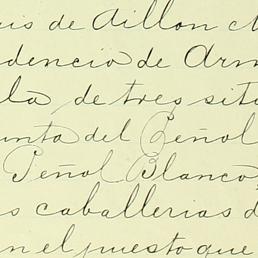 is de Aillon
dencio de Arm
la, de tres siti
unta del Peñol
Peñol Blanco,
s caballerias d
n el puesto que